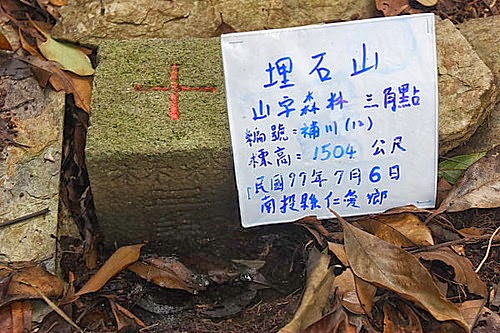 埋石山
山字森林 三角點
編號:補川(12)
標高:1504 公尺
民國97年7月6日
南投縣仁愛鄉